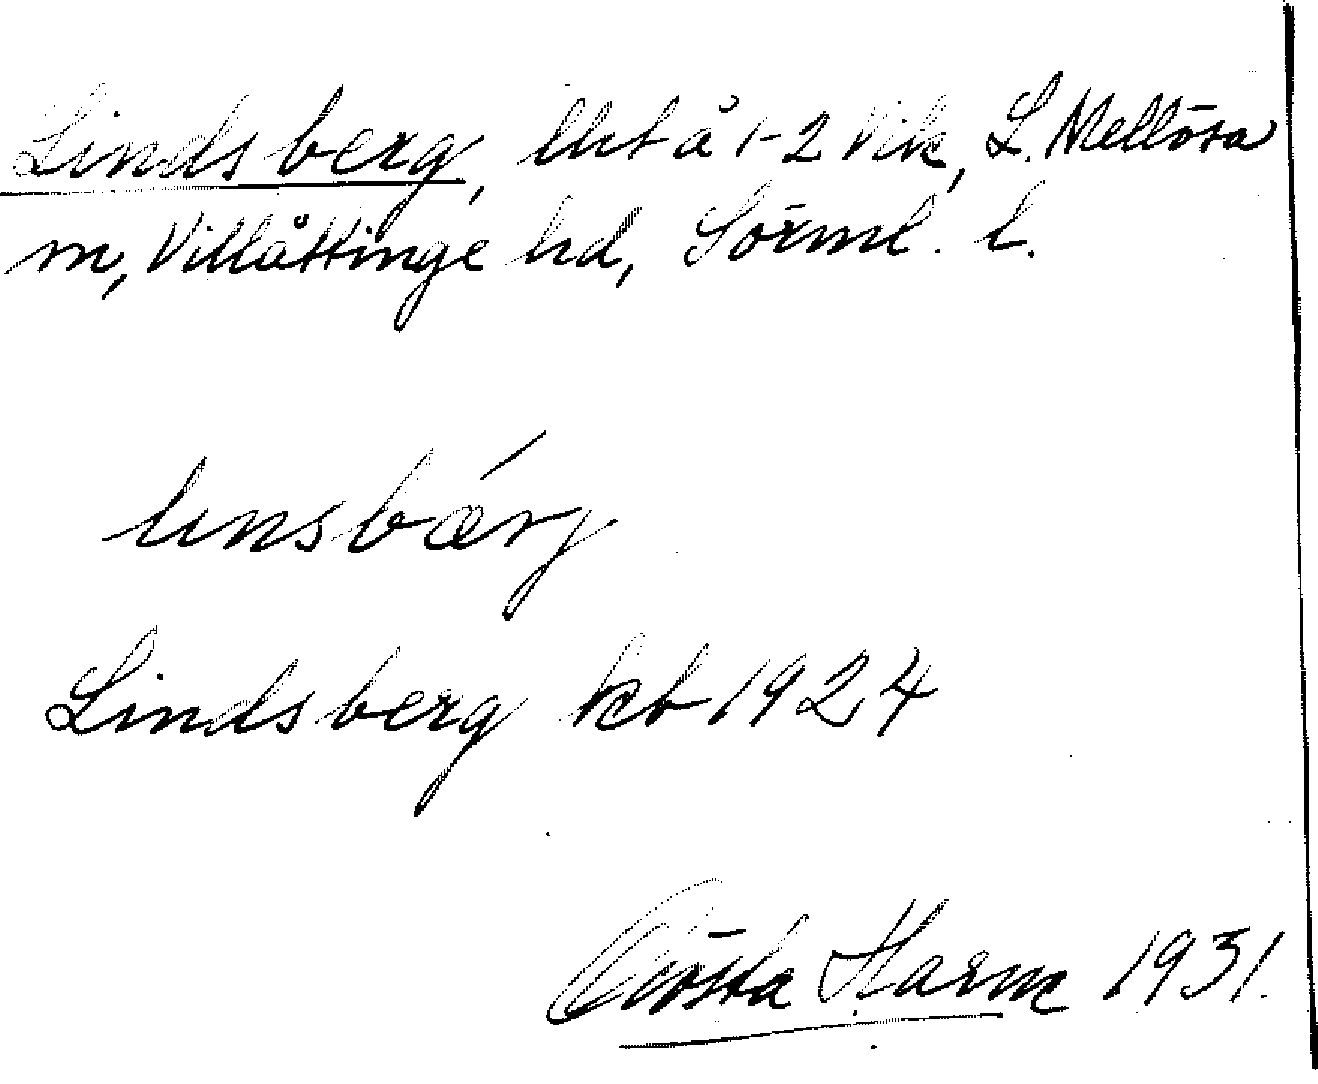 Lindsberg, lht å 1-2 Vik, L. Mellösa
sn, Villåttinge hd, Sörml. l.
linsbärj
Lindsberg kb 1924
Gösta Harm 1931.